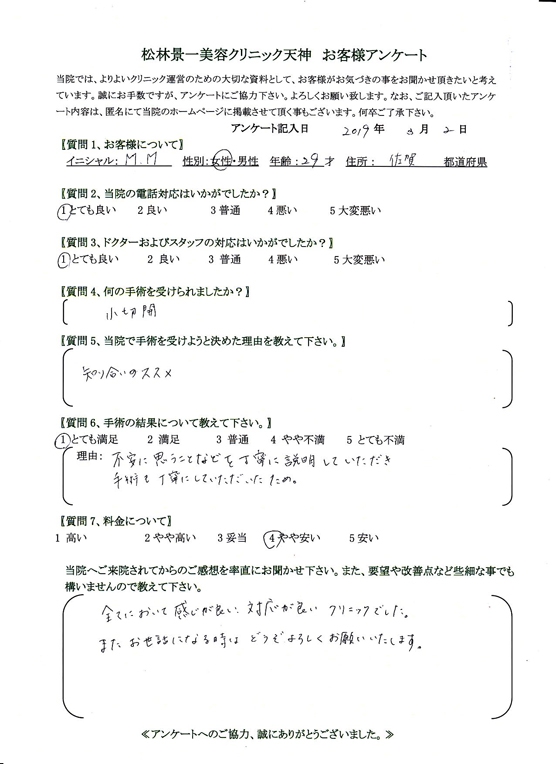 松林景一美容クリニック天神　お客様アンケート
当院では、よりよいクリニック運営のための大切な資料として、お客様がお気づきの事をお聞かせ頂きたいと考え
ています。誠にお手数ですが、アンケートにご協力下さい。よろしくお願い致します。なお、ご記入頂いたアンケ
ート内容は、匿名にて当院のホームページに掲載させて頂く事もございます。何卒ご了承下さい。
アンケート記入日　2019年　3月　2日
〖質問1、お客様について〗
イニシャル：M.M　性別：女性・男性　年齢：29才　住所：佐賀　都道府県
〖質問2、当院の電話対応はいかがでしたか？〗
1とても良い　2良い　3普通　4悪い　5大変悪い
〖質問3、ドクターおよびスタッフの対応はいかがでしたか？〗
1とても良い　2 良い　3 普通　4悪い　5大変悪い
〖質問4、何の手術を受けられましたか？〗
小切開
〖質問5、当院で手術を受けようと決めた理由を教えて下さい。〗
知り合いのススメ
〖質問6、手術の結果について教えて下さい。〗
1とても満足　2 満足　3 普通　4 やや不満　5 とても不満
理由：不安に思うことなどを丁寧に説明していただき
手術も丁寧にしていただいたため。
〖質問7、料金について〗
1 高い　2やや高い　3妥当　4やや安い　5安い
当院へご来院されてからのご感想を率直にお聞かせ下さい。また、要望や改善点など些細な事でも
構いませんので教えて下さい。
全てにおいて感じが良い、対応が良いクリニックでした。
またお世話になる時はどうぞよろしくお願いいたします。
≪アンケートへのご協力、誠にありがとうございました。≫